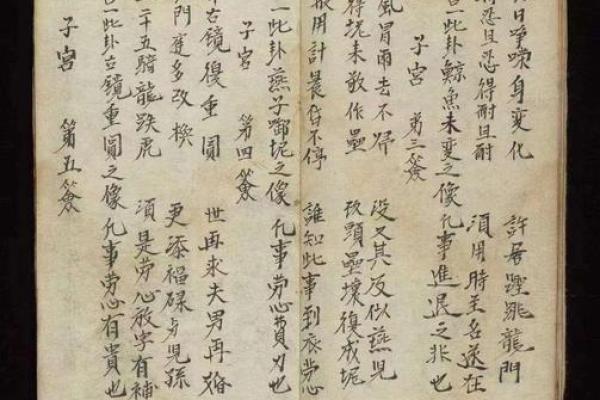 日崢嶸身變化 許君蹤跳龍門
得忍且忍得耐且耐 須用時至名遂在
一此卦鯨魚未變之像凡事進退之非也
子宮 第三簽
風冒雨去不歸 役又其反似燕兒
得坭未敢作壘 玖頭壘壞復成坭
般用計晨昏不停 誰知此事到底勞心
一此卦燕子啣坭之像 凡事勞心費力也
子宮 第四簽
古鏡復重圓 世再求夫男再婚
門庭多改換 更添福祿与兒孫
二十五騎龍跌虎 須是勞心放字有補
一此卦古鏡重圓之像凡事勞心有貴也
子宮 第五簽